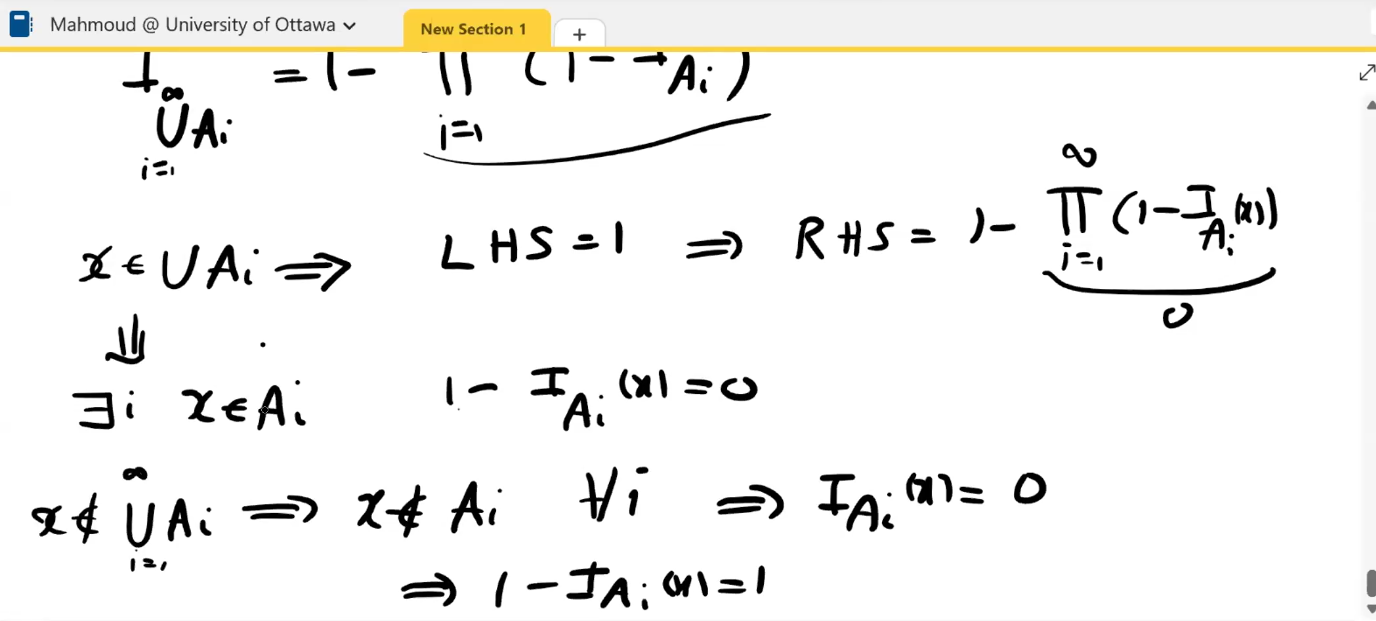 Mahmoud @ University of Ottawa
New Section 1
+
I_{\bigcup_{i=1}^{∞} A_i} = 1 - ∏_{i=1} (1 - I_{A_i})
x ∈ ∪ A_i ⟹ LHS = 1 ⟹ RHS = 1 - ∏_{i=1}^{∞} (1 - I_{A_i}(x))
⇓ 0
∃i x ∈ A_i 1 - I_{A_i}(x) = 0
x ∉ ∪_{i=1}^{∞} A_i ⟹ x ∉ A_i ∀i ⟹ I_{A_i}(x) = 0
⟹ 1 - I_{A_i}(x) = 1